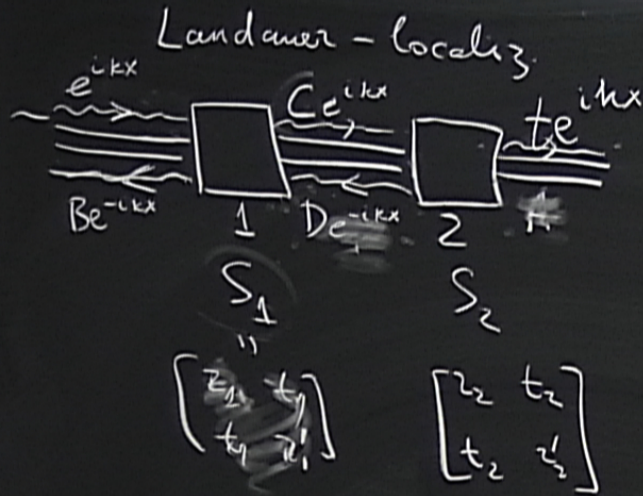 Landauer - localiz.
e^{ikx} Ce^{ikx} te^{ikx}
Be^{-ikx} 1 De^{-ikx} 2
S_1 S_2
"
[r_1 t_1 [r_2 t_2
t_1 r'_1] t_2 r'_2]